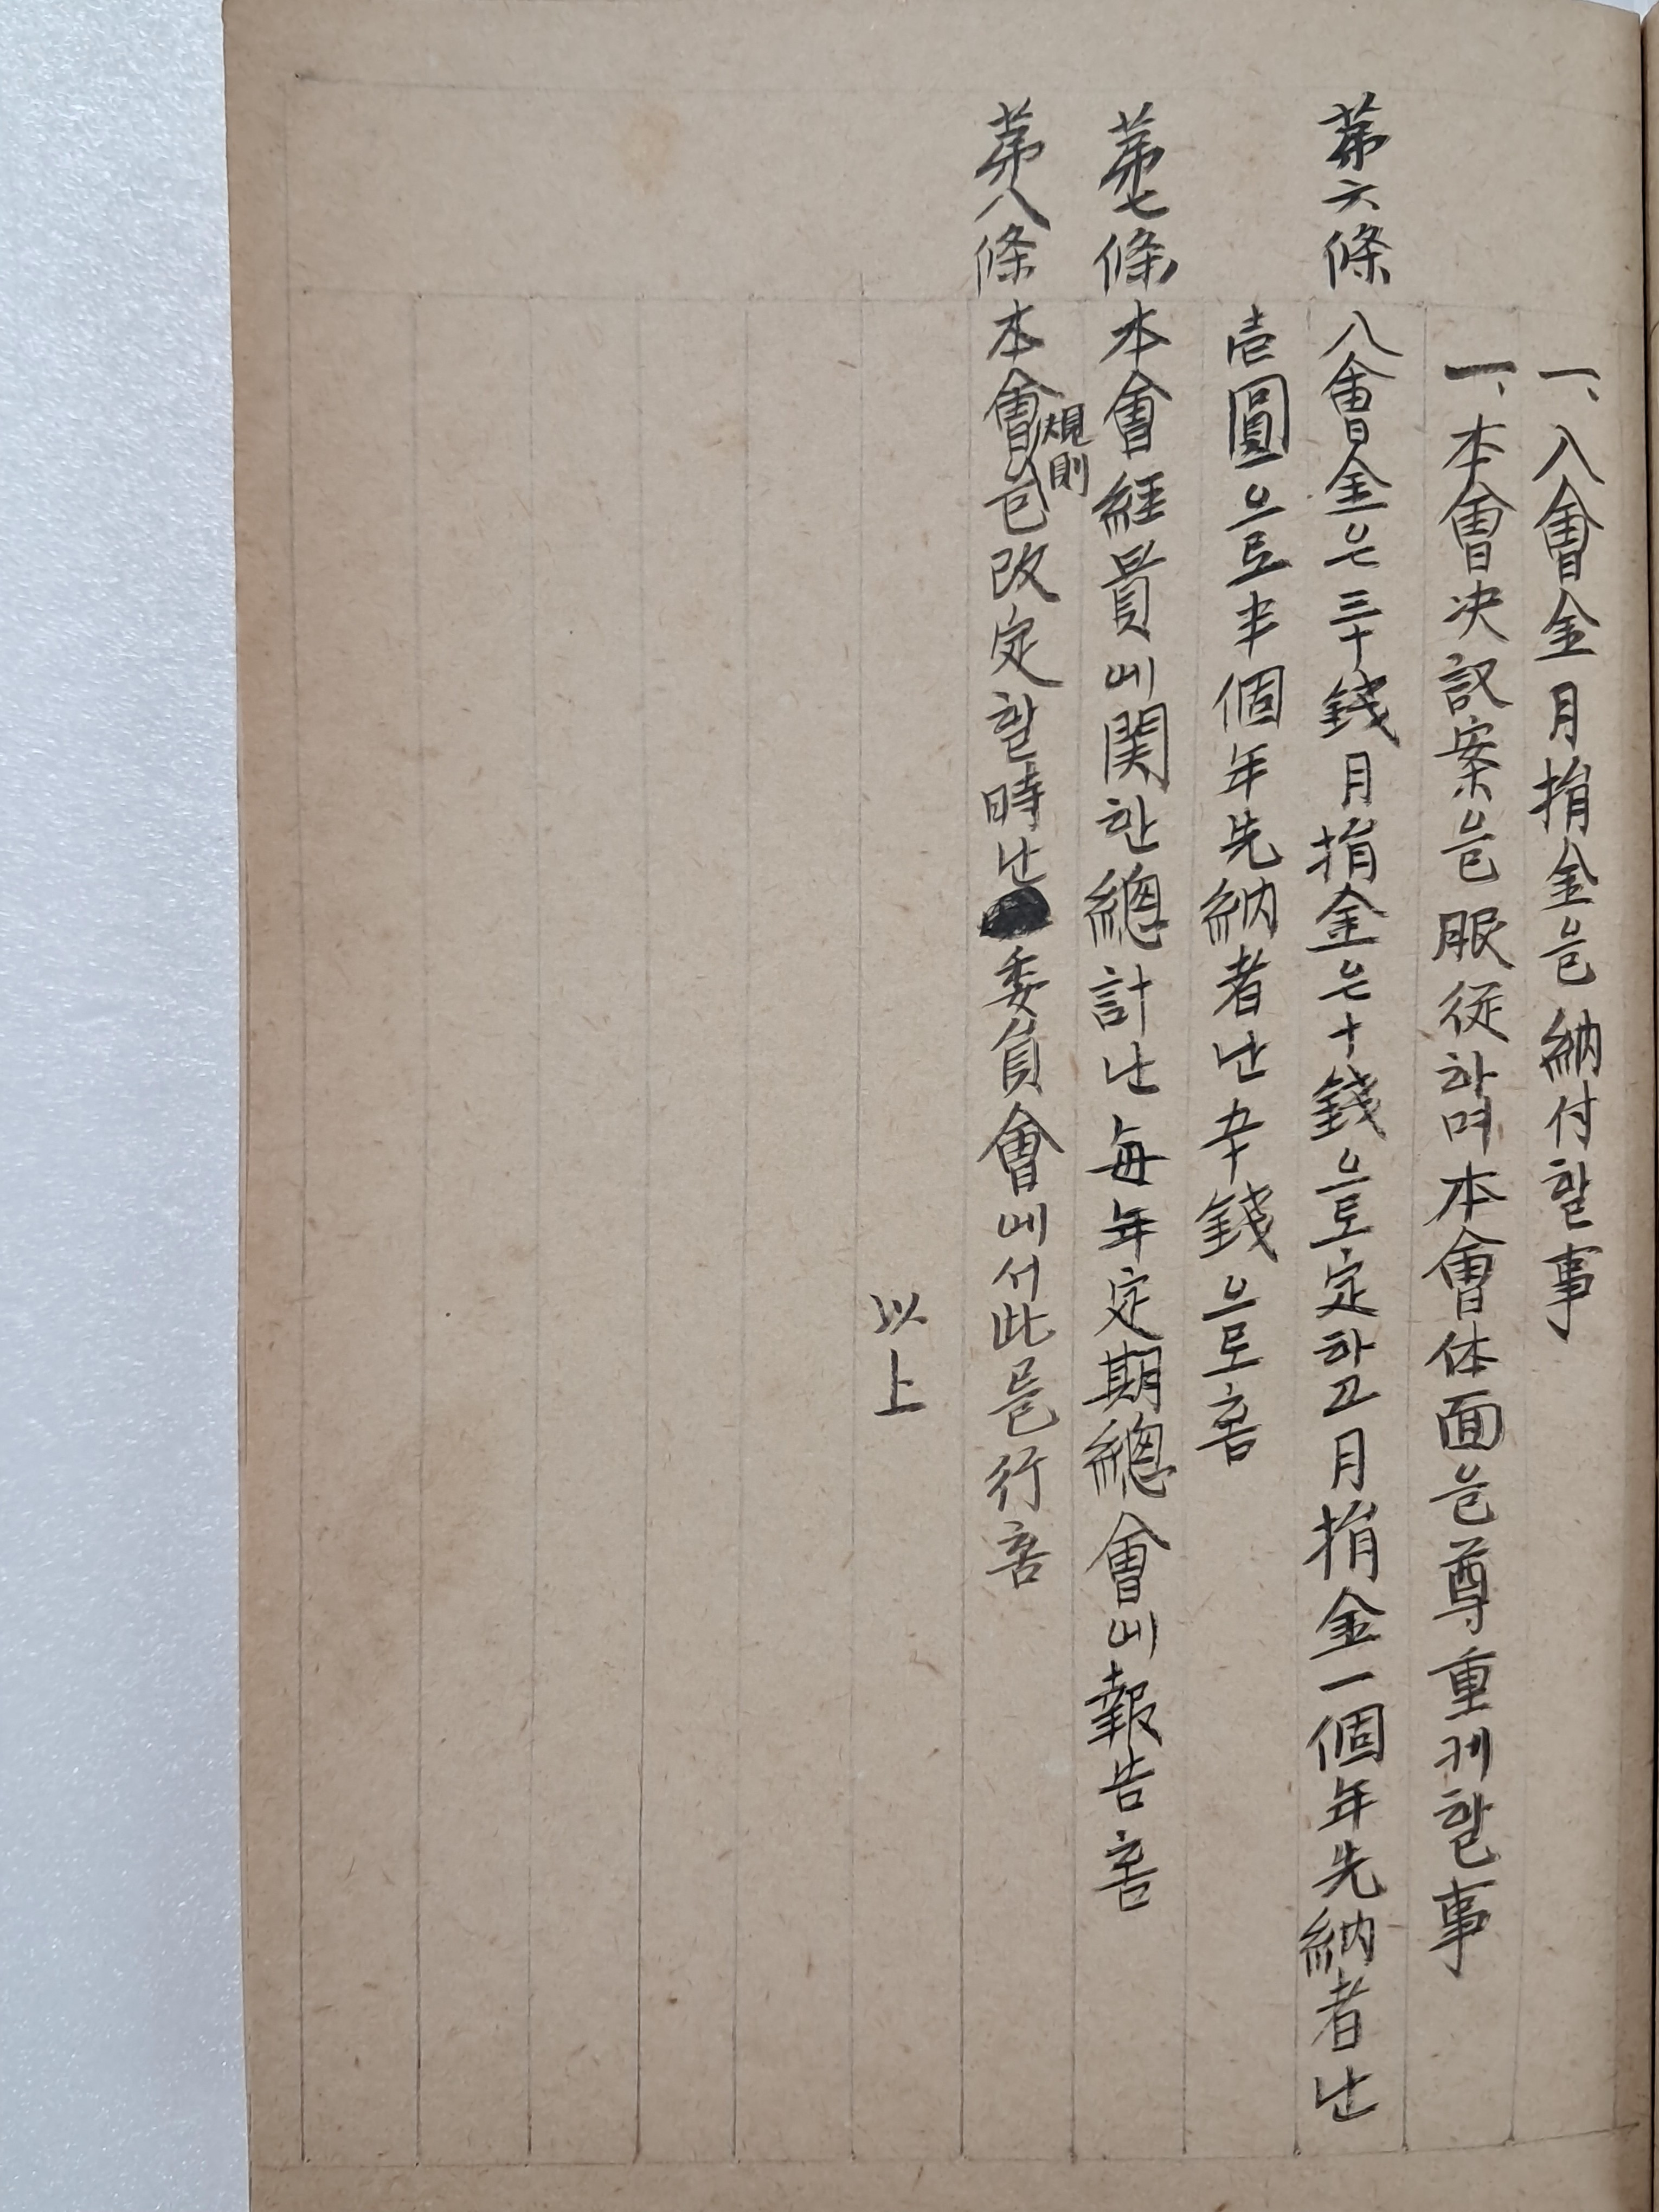 一、入會金月捐金을納付할事
一、本會决議案을服從하며本會体面을尊重케할事
苐六條 入會金은三十錢月捐金은十錢으로定하고月捐金一個年先納者난
壱圓으로半個年先納者난五十錢으로홈
苐七條 本會經費에関한總計난每年定期總會에報告홈
苐八條 本會規則을改定할時난委員會에서此를行홈
以上